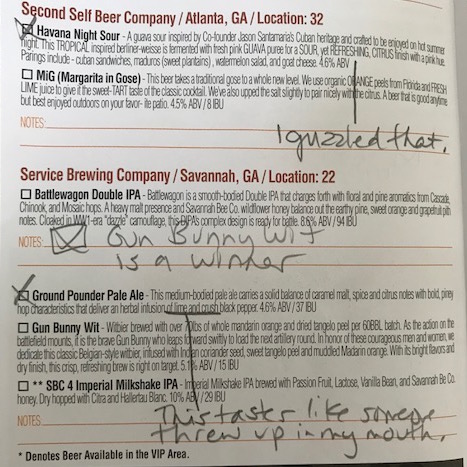 Second Self Beer Company / Atlanta, GA / Location: 32
Havana Night Sour - A guava sour inspired by Co-founder Jason Santamaria's Cuban heritage and crafted to be enjoyed on hot summer
night. This TROPICAL inspired berliner-weisse is fermented with fresh pink GUAVA puree for a SOUR, yet REFRESHING, CITRUS finish with a pink hue.
Pairings include - cuban sandwiches, maduros (sweet plantains), watermelon salad, and goat cheese. 4.6% ABV
MiG (Margarita in Gose) - This beer takes a traditional gose to a whole new level. We use organic ORANGE peels from Florida and FRESH
LIME juice to give it the sweet-TART taste of the classic cocktail. We've also upped the salt slightly to pair nicely with the citrus. A beer that is good anytime
but best enjoyed outdoors on your favor- ite patio. 4.5% ABV / 8 IBU
NOTES:
I guzzled that.
Service Brewing Company / Savannah, GA / Location: 22
Battlewagon Double IPA - Battlewagon is a smooth-bodied Double IPA that charges forth with floral and pine aromatics from Cascade,
Chinook, and Mosaic hops. A heavy malt presence and Savannah Bee Co. wildflower honey balance out the earthy pine, sweet orange and grapefruit pith
notes. Cloaked in WW1-era "dazzle" camouflage, this DIPA's complex design is ready for battle. 8.6% ABV / 94 IBU
NOTES: Gun Bunny Wit
is a winner
Ground Pounder Pale Ale - This medium-bodied pale ale carries a solid balance of caramel malt, spice and citrus notes with bold, piney
hop characteristics that deliver an herbal infusion of lime and crush black pepper. 4.6% ABV / 37 IBU
Gun Bunny Wit - Witbier brewed with over lbs of whole mandarin orange and dried tangelo peel per 60BBL batch. As the action on the
battlefield mounts, it is the brave Gun Bunny who leaps forward swiftly to load the next artillery round. In honor of these courageous men and women, we
dedicate this classic Belgian-style witbier, infused with Indian coriander seed, sweet tangelo peel and muddled Madarin orange. With its bright flavors and
dry finish, this crisp, refreshing brew is right on target. 5.1% ABV / 15 IBU
** SBC 4 Imperial Milkshake IPA - Imperial Milkshake IPA brewed with Passion Fruit, Lactose, Vanilla Bean, and Savannah Be Co.
honey. Dry hopped with Citra and Hallertau Blanc. 10% ABV / 29 IBU
NOTES: This tastes like someone
threw up in my mouth.
* Denotes Beer Available in the VIP Area.